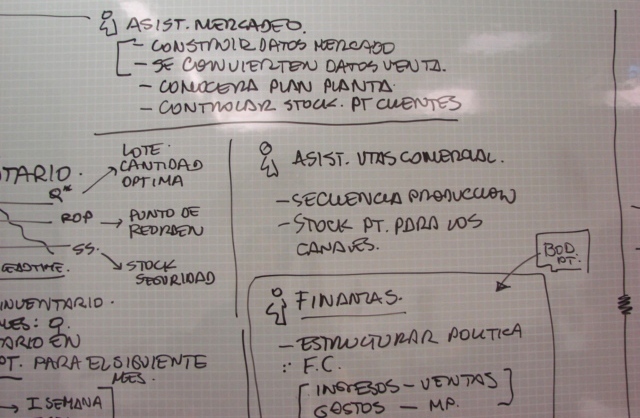 ASIST. MERCADEO.
- CONSTRUIR DATOS MERCADO
- SE CONVIERTEN DATOS VENTA.
- CONOCERA PLAN PLANTA.
- CONTROLAR STOCK. PT CLIENTES
TARIO.
LOTE.
CANTIDAD
OPTIMA
Q*
ROP → PUNTO DE
REORDEN
SS.
STOCK
SEGURIDAD
LEADTIME.
INVENTARIO.
LES: Q.
TARIO EN
PT. PARA EL SIGUIENTE
MES.
→ I SEMANA
ASIST. VTAS COMERCIAL.
- SECUENCIA PRODUCCION
- STOCK PT. PARA LOS
CANALES.
BOD
PT.
FINANZAS.
- ESTRUCTURAR POLITICA
:: F.C.
INGRESOS - VENTAS
GASTOS - MP.